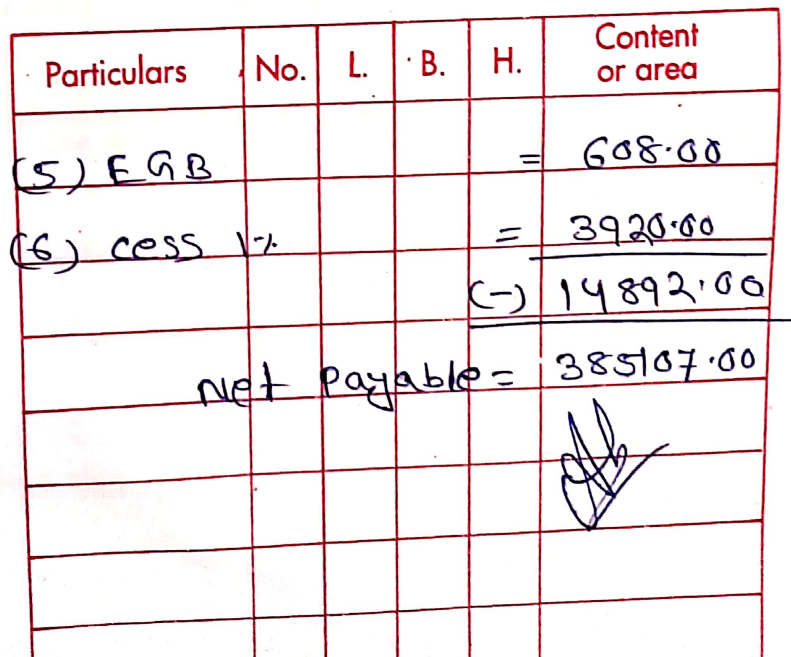 Particulars No. L. B. H. Content or area
(5) EGB = 608.00
(6) cess 1% = 3920.00
(-) 14892.00
Net Payable = 385107.00